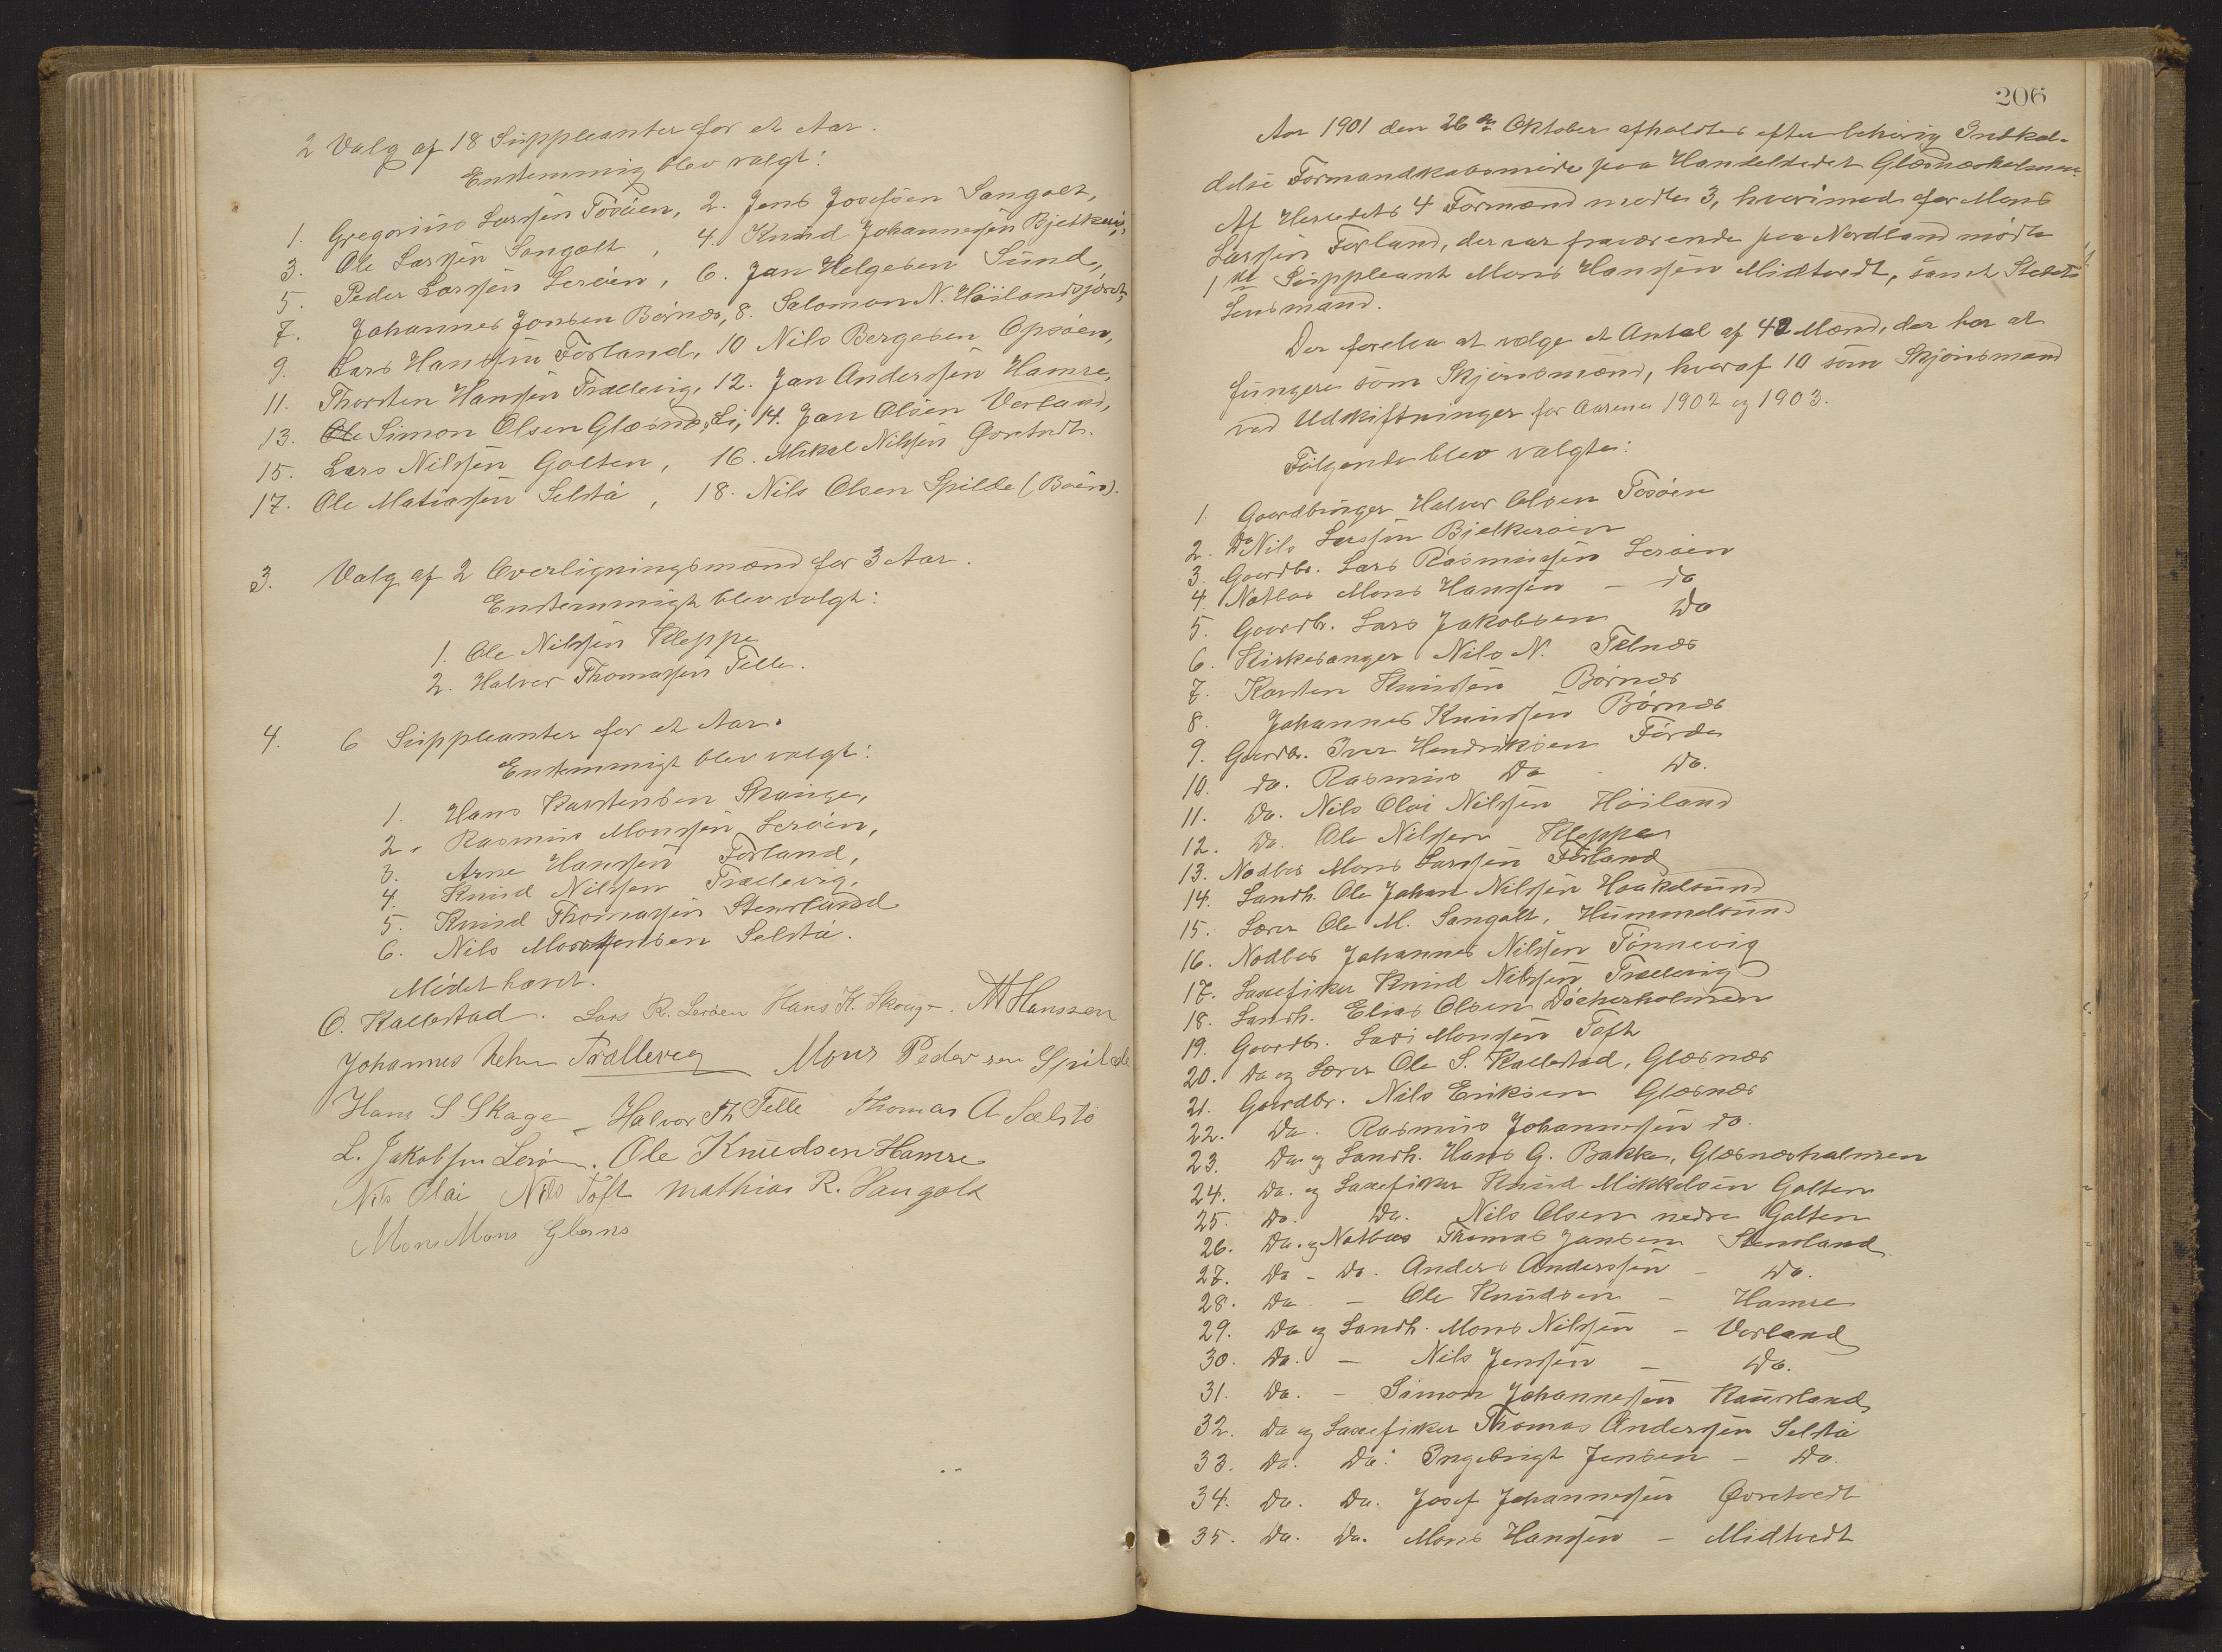 2 Valg af 18 Suppleanter for et Aar.
Enstemmig blev valgt:
1. Gregorius Larssen Tosöen, 2. Jens Josefsen Sangolt,
3. Ole Larssen Sangolt, 4. Knud Johannessen Bjelkeröi,
5. Peder Larssen Leröen, 6. Jan Helgesen Sund,
7. Johannes Jonsen Börnæs, 8. Salomon N. Höilandsjæret,
9. Lars Hanssen Forland, 10 Nils Bergesen Opsöen,
11. Thorsten Hanssen Trællevig, 12. Jan Anderssen Hamre,
13. Ole Simon Olsen Glæsnæs, Li, 14. Jan Olsen Vorland,
15. Lars Nilssen Golten, 16. Mikal Nilssen Övretvedt.
17. Ole Matiassen Selstö, 18. Nils Olsen Spilde (Böen).
3. Valg af 2 Overligningsmænd for 3 Aar.
Enstemmigt blev valgt:
1. Ole Nilssen Kleppe
2. Halvor Thomassen Telle.
4. 6 Suppleanter for et Aar.
Enstemmigt blev valgt:
1. Hans Karstensen Skauge,
2. Rasmus Monssen Leröen,
3. Arne Hanssen Forland,
4. Knud Nilssen Trællevig,
5. Knud Thomassen Stensland
6. Nils Mortensen Selstö.
Mödet hævet.
O. Kallestad. Lars R. Leröen Hans K. Skauge. M Hanssen
Johannes Trællevig Mons Pedersen Spilde
Hans S. Skage Halvor Th Telle Thomas A Sælstö
L. Jakobsen Lerö. Ole Knudsen Hamre
Nils Olai Nils Toft Mathias R. Sangolt
Mons Mons Glesnes
206
Aar 1901 den 26de Oktober afholdtes efter lovlig Indkal-
delse Formandskabsmöde paa Handelstedet Glæsnæsholmen.
Af Herredets 4 Formænd mödte 3, hvorimod for Mons
Larssen Forland, der var fraværende paa Nordland mödte
1ste Suppleant Mons Hanssen Midtvedt, samt Stedets
Lensmand.
Der forelaa at vælge et Antal af 42 Mænd, der har at
fungere som Skjönsmænd, hvoraf 10 som Skjönsmænd
ved Udskiftninger for Aarene 1902 og 1903.
Fölgende blev valgte:
1. Gaardbruger Halvor Olsen Tosöen
2. Do Nils Larssen Bjelkeröen
3. Gaardbr. Lars Rasmussen Leröen
4. Notbas Mons Hanssen - do
5. Gaardbr. Lars Jakobsen Do
6. Kirkesanger Nils N. Telnæs
7. Karsten Knudsen Börnæs
8. Johannes Knudsen Börnæs
9. Gaardbr. Iver Hendriksen Förde
10. do. Rasmus Do Do.
11. Do. Nils Olai Nilssen Höiland
12. Do. Ole Nilssen Kleppe
13. Nodbas Mons Larssen Forland
14. Landh. Ole Johan Nilssen Haakelsund
15. Lærer Ole M. Sangolt, Hummelsund
16. Nodbas Johannes Nilssen Tönnevig
17. Laxefisker Knud Nilssen Trællevig
18. Landh. Elias Olsen Döckerholmen
19. Gaardbr. Lars Monssen Toft
20. Do og Lærer Ole S. Kallestad, Glæsnæs
21. Gaardbr. Nils Eriksen Glæsnæs
22. Do. Rasmus Johannessen do.
23. Do og Landh. Hans G. Bakke, Glæsnæsholmen
24. Do. og Laxefisker Knud Mikkelsen Golten
25. Do. Do. Nils Olsen nedre Golten
26. Do. og Notbas Thomas Jansen Stensland
27. Do - Do. Anders Anderssen - Do.
28. Do. - Ole Knudsen - Hamre
29. Do og Landh. Mons Nilssen - Vorland
30. Do. - Nils Jenssen - Do.
31. Do. - Simon Johannessen Kausland
32. Do og Laxefisker Thomas Anderssen Selstö
33. Do. Do. Ingebrigt Jensen - Do.
34. Do. Do. Josef Johannessen Övretvedt
35. Do. Do. Mons Hanssen - Midtvedt